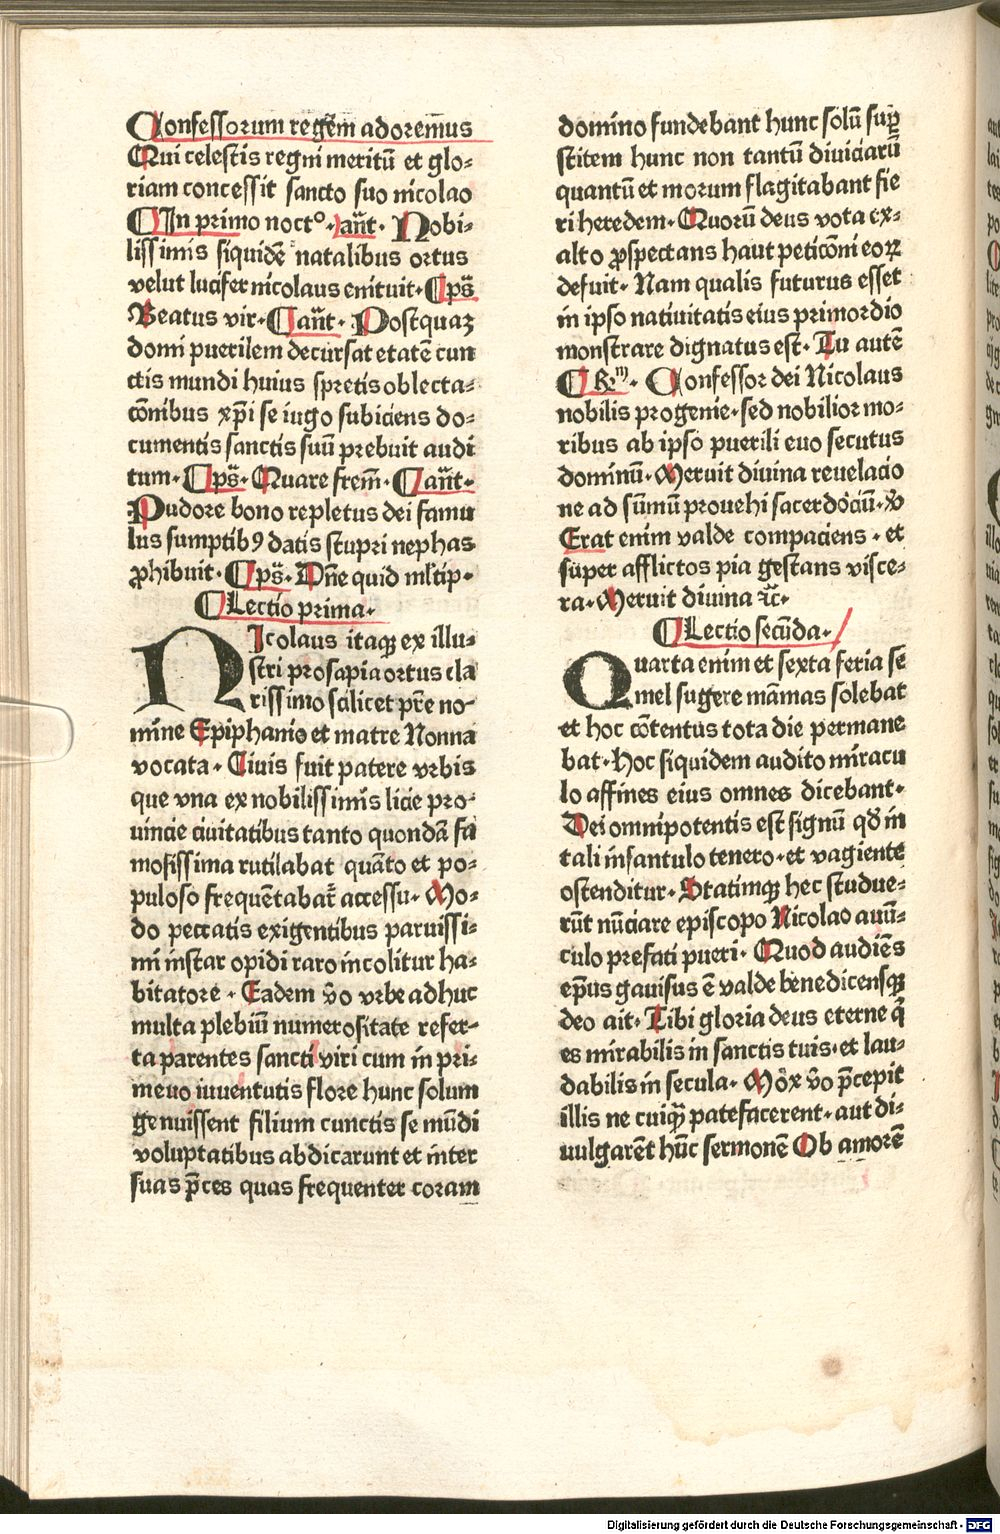 Confessorum regē̄m adorem̄us
Qui celestis regni meritū et glo⸗
riam concessit sancto suo nicolao
¶ In primo noct⁰. ant̄. Nobi⸗
lissimis siquidē natalibus ortus
velut lucifer nicolaus enituit. ¶ ps̄
Beatus vir. ¶ ant̄. Postquaꝫ
domi puerilem decursat etatē cun
ctis mundi huius spretis oblecta⸗
cōnibus xp̄i se iugo subiciens do⸗
cumentis sanctis suū prebuit audi
tum. ¶ ps̄. Quare frem̄. ¶ ant̄.
Pudore bono repletus dei famu
lus sumptibꝰ datis stupri nephas
ꝓhibuit. ¶ ps̄. Dn̄e quid ml̄tip.
¶ Lectio prima.
NIcolaus itaqꝫ ex illu⸗
stri prosapia ortus cla
rissimo scilicet pr̄e no⸗
mine Epiphanio et matre Nonna
vocata. Ciuis fuit patere vrbis
que vna ex nobilissimis licie pro⸗
uincie ciuitatibus tanto quondā fa
mosissima rutilabat quāto et po⸗
puloso frequētabat᷑ accessu. Mo⸗
do peccatis exigentibus paruissi⸗
mi instar opidi raro incolitur ha⸗
bitatore. Eadem v̄o vrbe adhuc
multa plebiū numerositate refer⸗
ta parentes sancti viri cum in pri⸗
meuo iuuentutis flore hunc solum
genuissent filium cunctis se mūdi
voluptatibus abdicarunt et inter
suas p̄ces quas frequenter coram
domino fundebant hunc solū suꝑ
stitem hunc non tantū diuiciarū
quantū et morum flagitabant fie
ri heredem. Quorū deus vota ex⸗
alto ꝓspectans haut peticōni eoꝝ
defuit. Nam qualis futurus esset
in ipso natiuitatis eius primordio
monstrare dignatus est. Tu autē
¶ R̄m. Confessor dei Nicolaus
nobilis progenie. sed nobilior mo⸗
ribus ab ipso puerili euo secutus
dominū. Meruit diuina reuelacio
ne ad sūmū prouehi sacerdōciū. v̄o
Erat enim valde compaciens. et
super afflictos pia gestans visce⸗
ra. Meruit diuina ꝛc̄.
¶ Lectio secūda.
Quarta enim et sexta feria se
mel sugere māmas solebat
et hoc cōtentus tota die permane
bat. Hoc siquidem audito miracu
lo affines eius omnes dicebant.
Dei omnipotentis est signū qđ in
tali infantulo tenero. et vagiente
ostenditur. Statimqꝫ hec studue⸗
rūt nūciare episcopo Nicolao auū⸗
culo prefati pueri. Quod audiēs
ep̄us gauisus ē valde benedicensqꝫ
deo ait. Tibi gloria deus eterne q̄
es mirabilis in sanctis tuis. et lau⸗
dabilis in secula. Mox v̄o p̄cepit
illis ne cuiq̄ꝫ patefacerent. aut di⸗
uulgarēt hūc sermonē Ob amorē
Digitalisierung gefördert durch die Deutsche Forschungsgemeinschaft - DFG